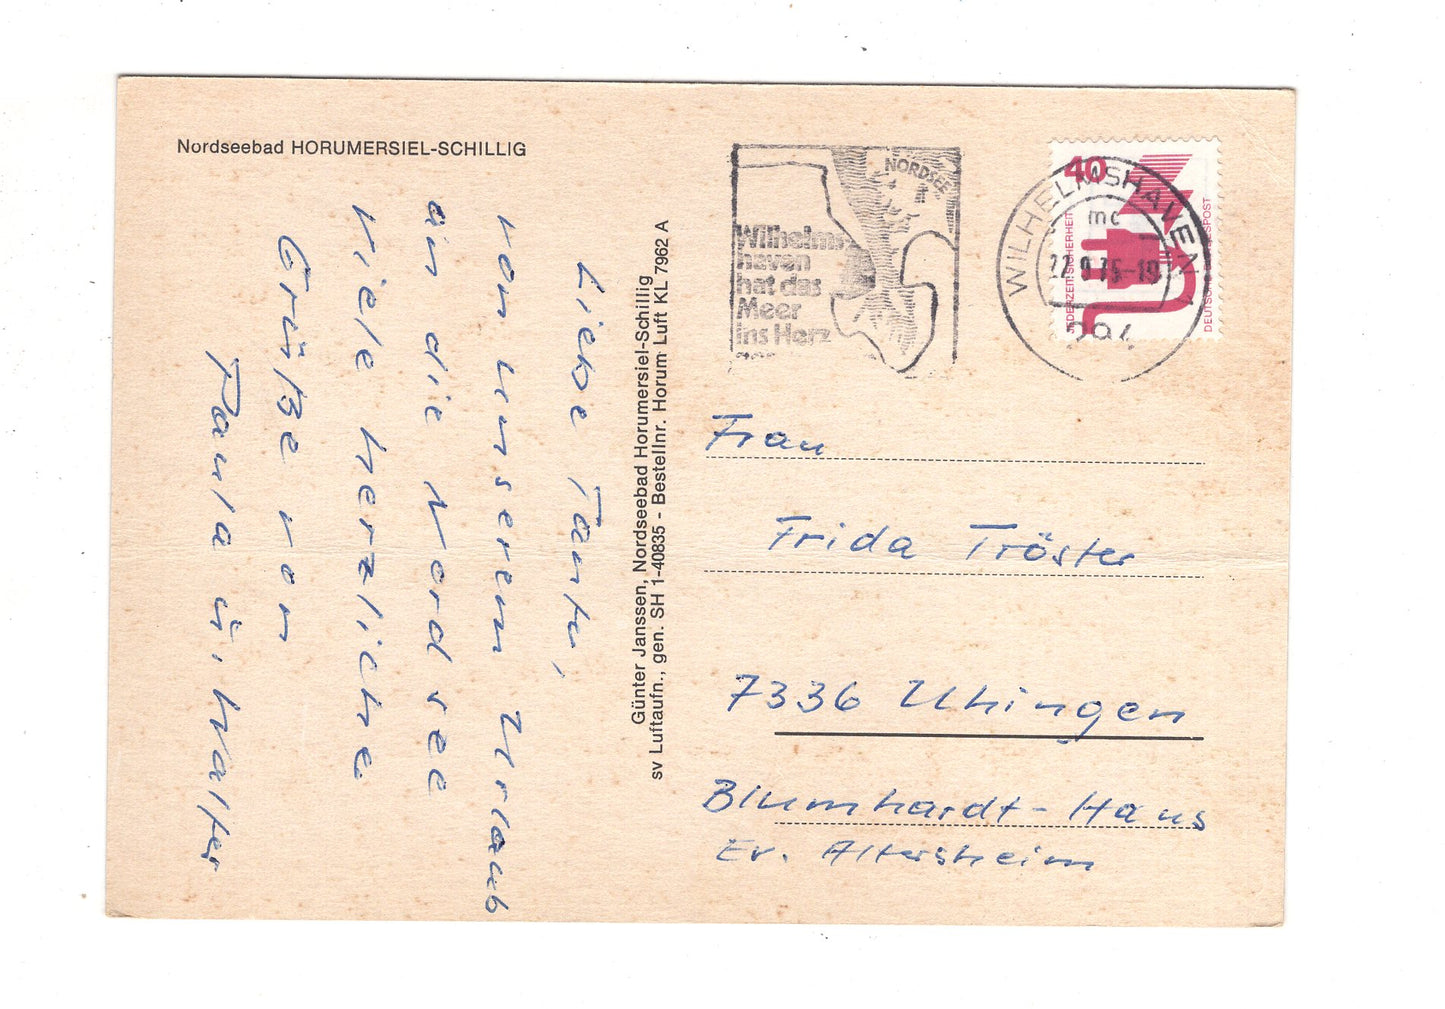 Nordseebad HORUMERSIEL-SCHILLIG
Liebe Tante,
von unserem Urlaub
an die Nordsee
viele herzliche
Grüße von
Paula u. Walter
Günter Janssen, Nordseebad Horumersiel-Schillig
sv Luftaufn., gen. SH 1-40835 - Bestellnr. Horum Luft KL 7962 A
NORDSEE
Wilhelms-
haven
hat das
Meer
ins Herz
40
JEDERZEIT SICHERHEIT
DEUTSCHE BUNDESPOST
WILHELMSHAVEN 1
mc
22.9.75-19
294
Frau
Frida Tröster
7336 Uhingen
Blumhardt-Haus
Ev. Altersheim